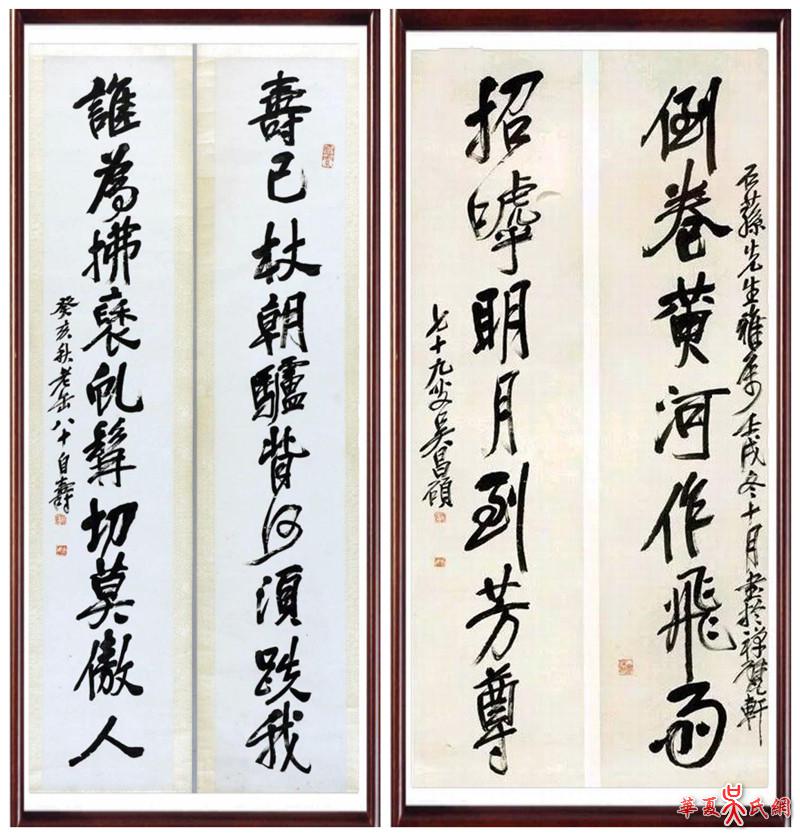 壽已杖朝驢背何須跌我
誰為拂虬髯切莫傲人
癸亥秋老缶八十自壽
石蓀先生雅屬壬戌冬十月書於禪甓軒
倒卷黃河作飛雨
招嘑明月到芳尊
七十九叟吳昌碩
華夏吴氏網